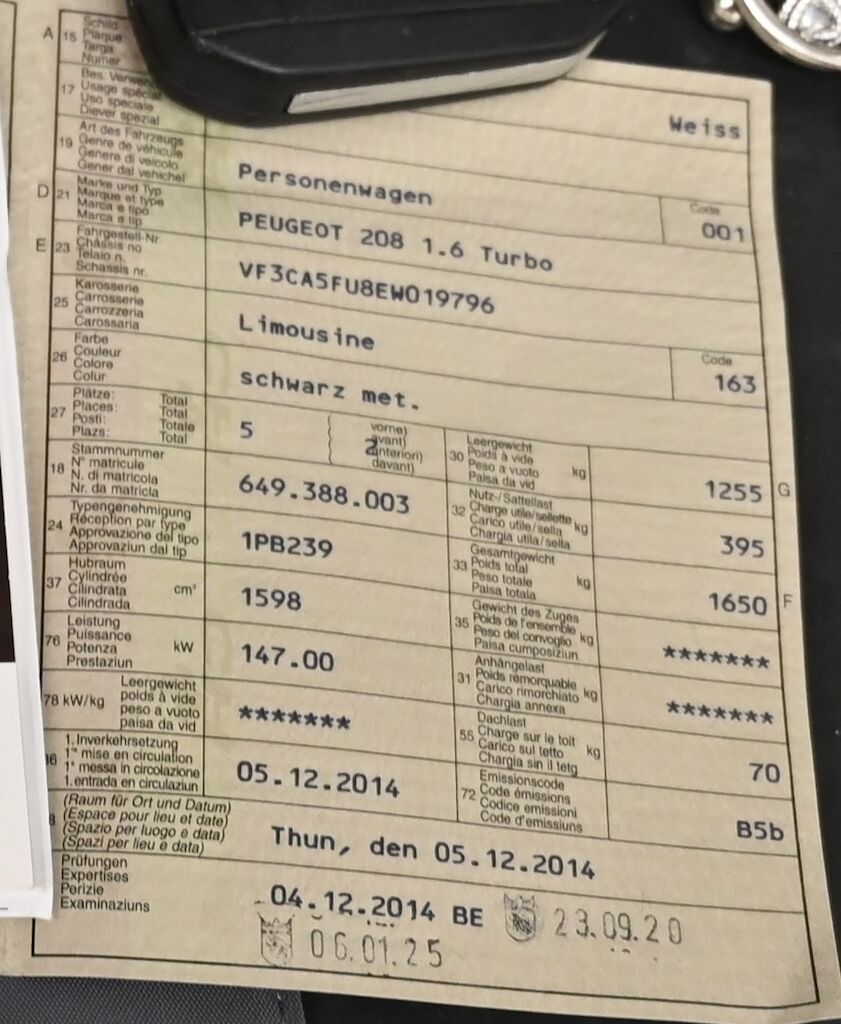 A 15 Schild
Plaque
Targa
Numer
Weiss
17 Bes.
Usage spécial
Uso speciale
Diever spezial
19 Art des Fahrzeugs
Genre de véhicule
Genere di veicolo
Gener dal vehichel
Personenwagen
Code
001
D 21 Marke und Typ
Marque et type
Marca e tipo
Marca e tip
PEUGEOT 208 1.6 Turbo
E 23 Fahrgestell-Nr.
Châssis no
Telaio n.
Schassis nr.
VF3CA5FU8EW019796
25 Karosserie
Carrosserie
Carrozzeria
Carossaria
Limousine
Code
163
26 Farbe
Couleur
Colore
Colur
schwarz met.
27 Plätze: Total
Places: Total
Posti: Totale
Plazs: Total
5
vorne)
avant)
anteriori)
davant)
2
30 Leergewicht
Poids à vide
Peso a vuoto
Paisa da vid
kg
1255 G
18 Stammnummer
N° matricule
N. di matricola
Nr. da matricla
649.388.003
32 Nutz-/Sattellast
Charge utile/sellette
Carico utile/sella
Chargia utila/sella
kg
395
24 Typengenehmigung
Réception par type
Approvazione del tipo
Approvaziun dal tip
1PB239
33 Gesamtgewicht
Poids total
Peso totale
Paisa totala
kg
1650 F
37 Hubraum
Cylindrée
Cilindrata
Cilindrada
cm³
1598
35 Gewicht des Zuges
Poids de l'ensemble
Peso del convoglio
Paisa cumposiziun
kg
*******
76 Leistung
Puissance
Potenza
Prestaziun
kW
147.00
31 Anhängelast
Poids remorquable
Carico rimorchiato
Chargia annexa
kg
*******
78 kW/kg
Leergewicht
poids à vide
peso a vuoto
paisa da vid
*******
55 Dachlast
Charge sur le toit
Carico sul tetto
Chargia sin il tetg
kg
70
36 1. Inverkehrsetzung
1re mise en circulation
1a messa in circolazione
1. entrada en circulaziun
05.12.2014
72 Emissionscode
Code émissions
Codice emissioni
Code d'emissiuns
B5b
8 (Raum für Ort und Datum)
(Espace pour lieu et date)
(Spazio per luogo e data)
(Spazi per lieu e data)
Thun, den 05.12.2014
Prüfungen
Expertises
Perizie
Examinaziuns
04.12.2014 BE 23.09.20
06.01.25